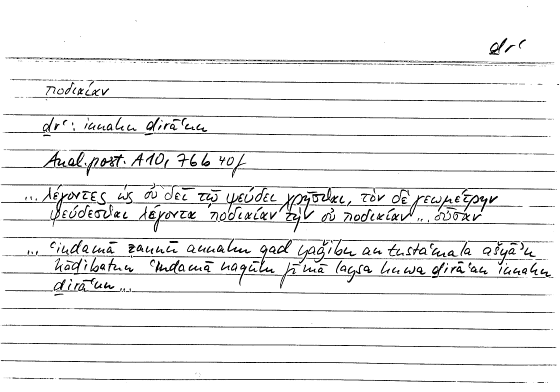 drʿ
ποδιαίαν
ḏrʿ: innahu ḏirāʿun
Anal. post. A10, 76b 40f
... λέγοντες ὡς οὐ δεῖ τῷ ψεύδει χρῆσθαι, τὸν δὲ γεωμέτρην
ψεύδεσθαι λέγοντα ποδιαίαν τὴν οὐ ποδιαίαν ... οὖσαν
... ʿindamā zannū annahu qad yaǧibu an tustaʿmala ašyāʾu
kāḏibatun ʿindamā naqūlu fīmā laysa huwa ḏirāʿan innahu
ḏirāʿun ...